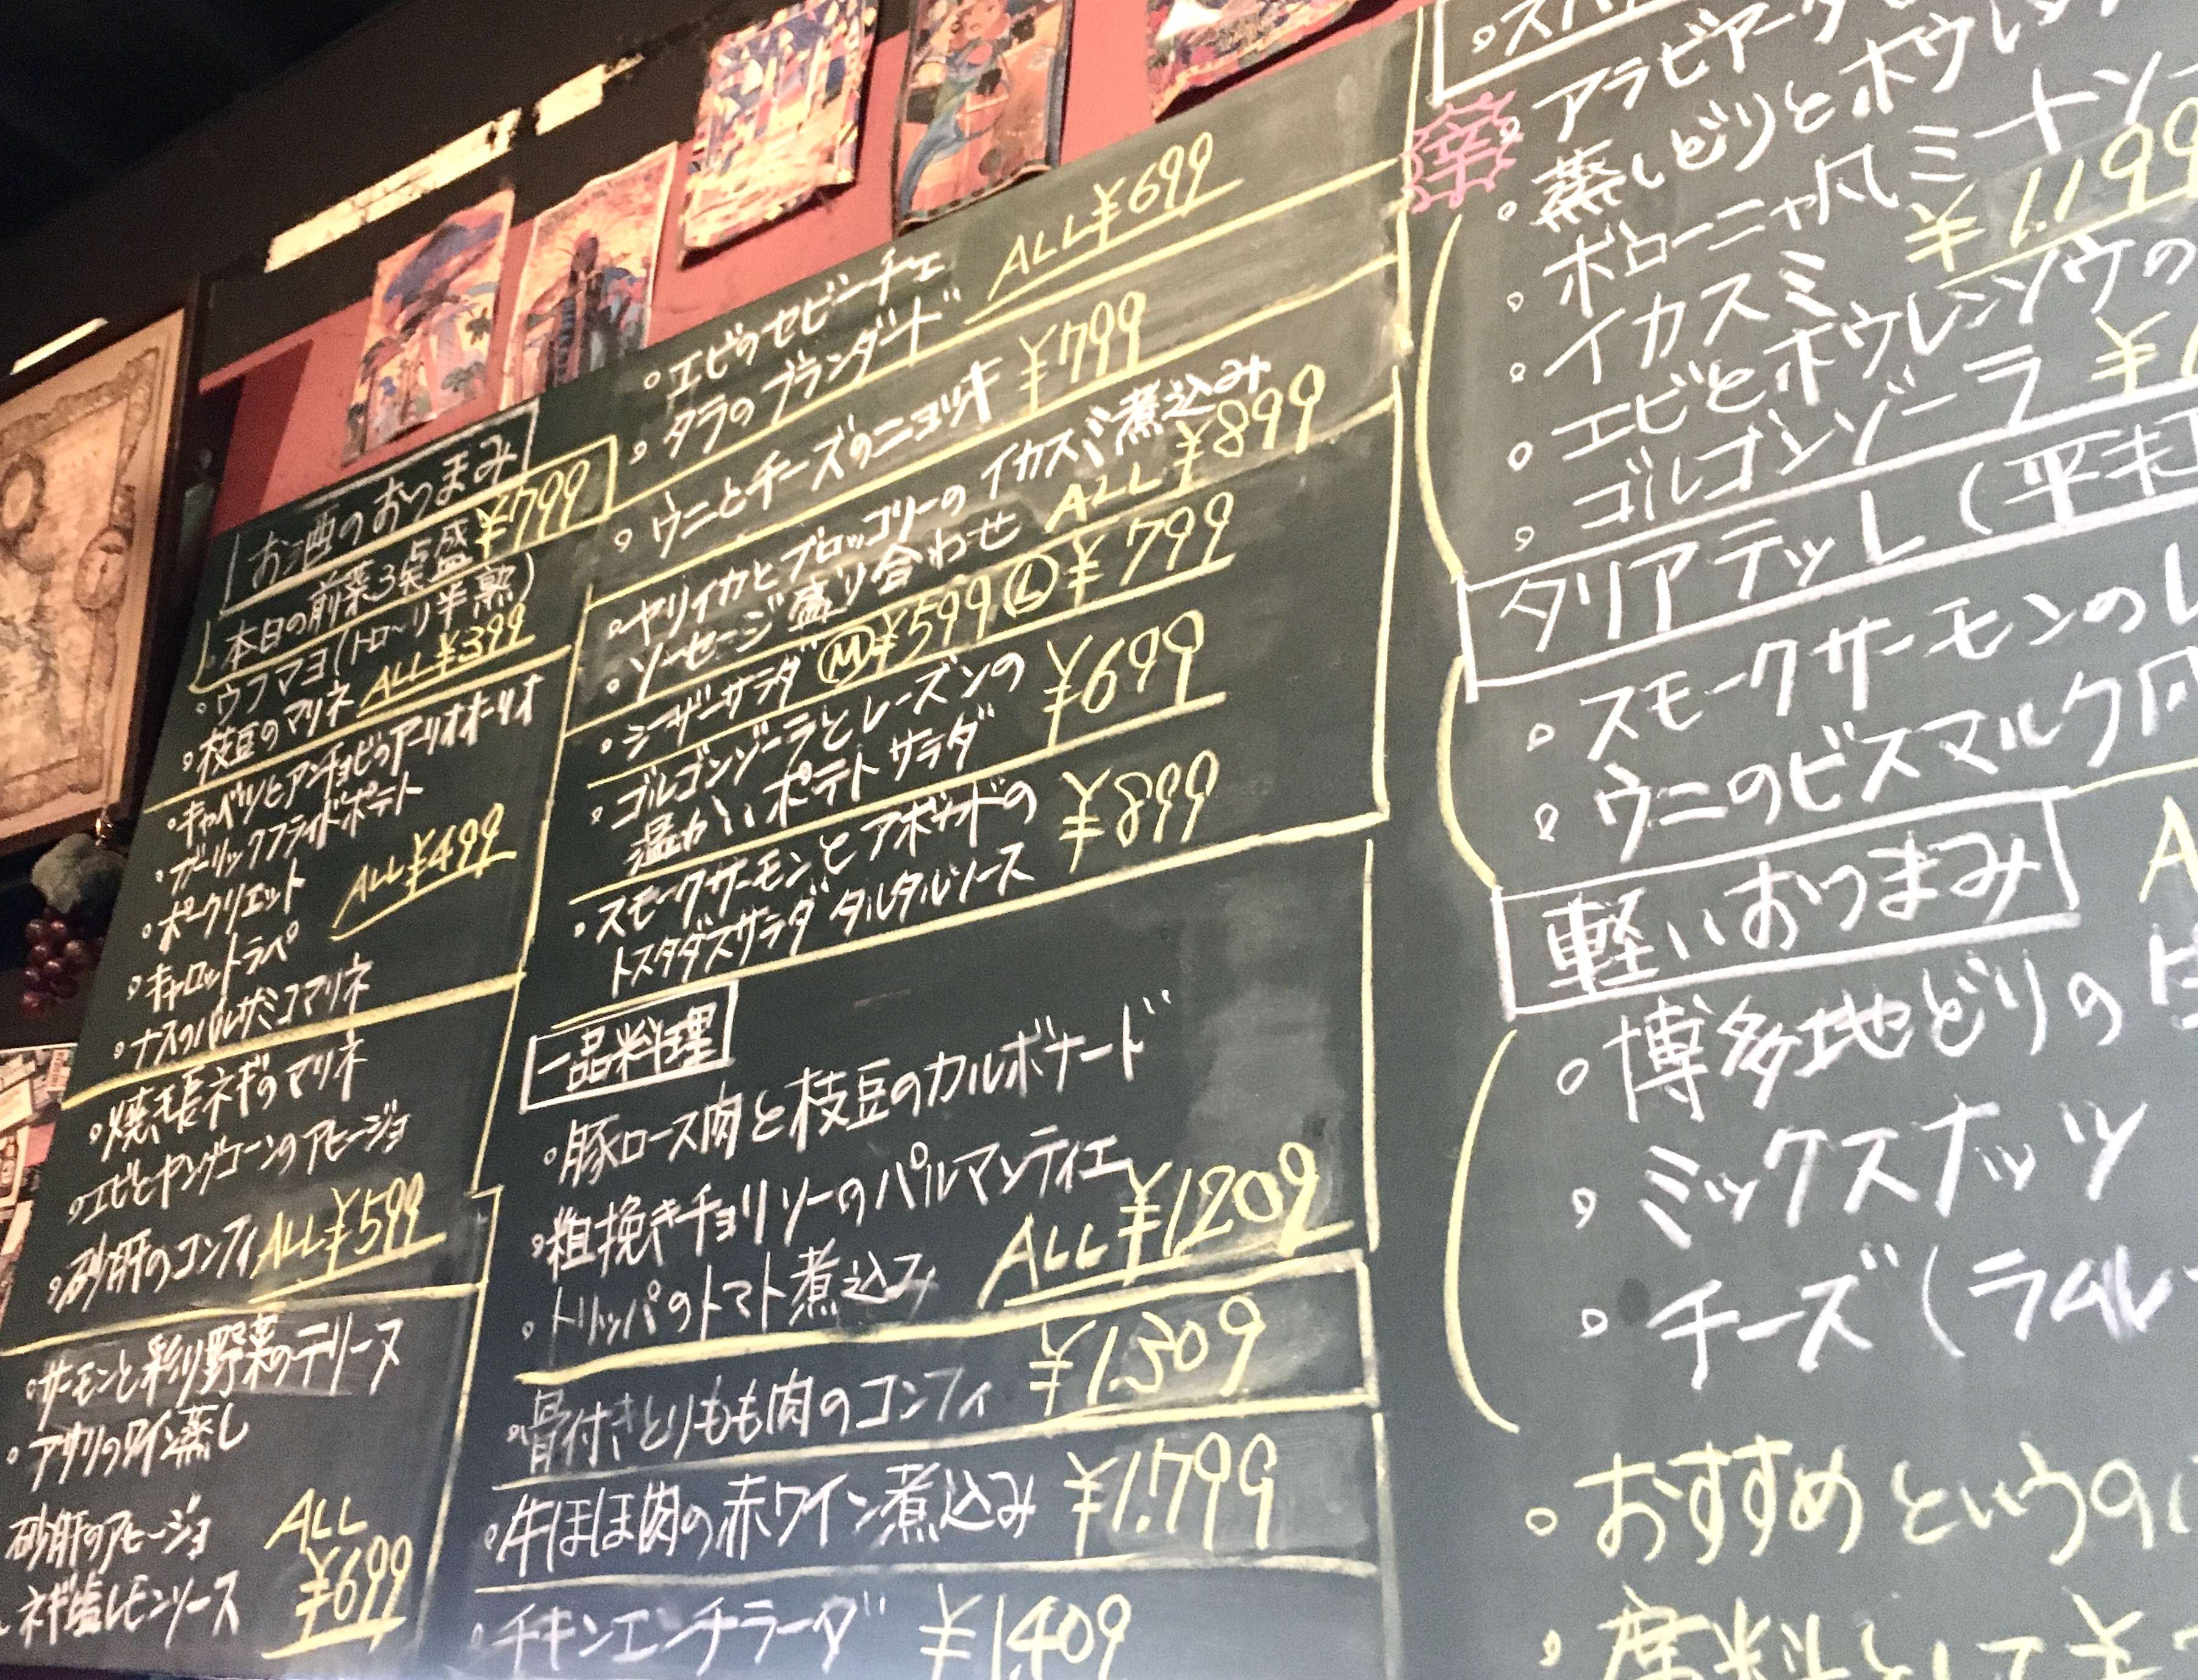 お酒のおつまみ
本日の前菜3点盛 ¥799
ウフマヨ(トロ〜リ半熟)
枝豆のマリネ ALL ¥399
キャベツとアンチョビのアーリオオーリオ
ガーリックフライドポテト
ポークリエット
ALL ¥499
キャロットラペ
ナスのバルサミコマリネ
焼き長ネギのマリネ
エビとヤングコーンのアヒージョ
砂肝のコンフィ ALL ¥599
サーモンと彩り野菜のテリーヌ
アサリのワイン蒸し
砂肝のアヒージョ
ネギ塩レモンソース
ALL
¥699
エビのセビーチェ
タラのブランダード
ALL ¥699
ウニとチーズのニョッキ ¥799
ヤリイカとブロッコリーのイカスミ煮込み
ソーセージ盛り合わせ ALL ¥899
シーザーサラダ Ⓜ¥599 Ⓛ¥799
ゴルゴンゾーラとレーズンの
温かいポテトサラダ
¥699
スモークサーモンとアボカドの
トスタダスサラダ タルタルソース
¥899
一品料理
豚ロース肉と枝豆のカルボナード
粗挽きチョリソーのパルマンティエ
トリッパのトマト煮込み
ALL ¥1209
骨付きとりもも肉のコンフィ ¥1.309
牛ほほ肉の赤ワイン煮込み ¥1.799
チキンエンチラーダ ¥1,409
辛
アラビアータ
蒸しどりとホウレン
ボローニャ風ミートソ
イカスミ ¥1.199
エビとホウレンソウの
ゴルゴンゾーラ ¥1
タリアテッレ(平
スモークサーモンの
ウニのビスマルク風
軽いおつまみ
博多地どりの
ミックスナッツ
チーズ(ラムレ
おすすめというの
席料として¥